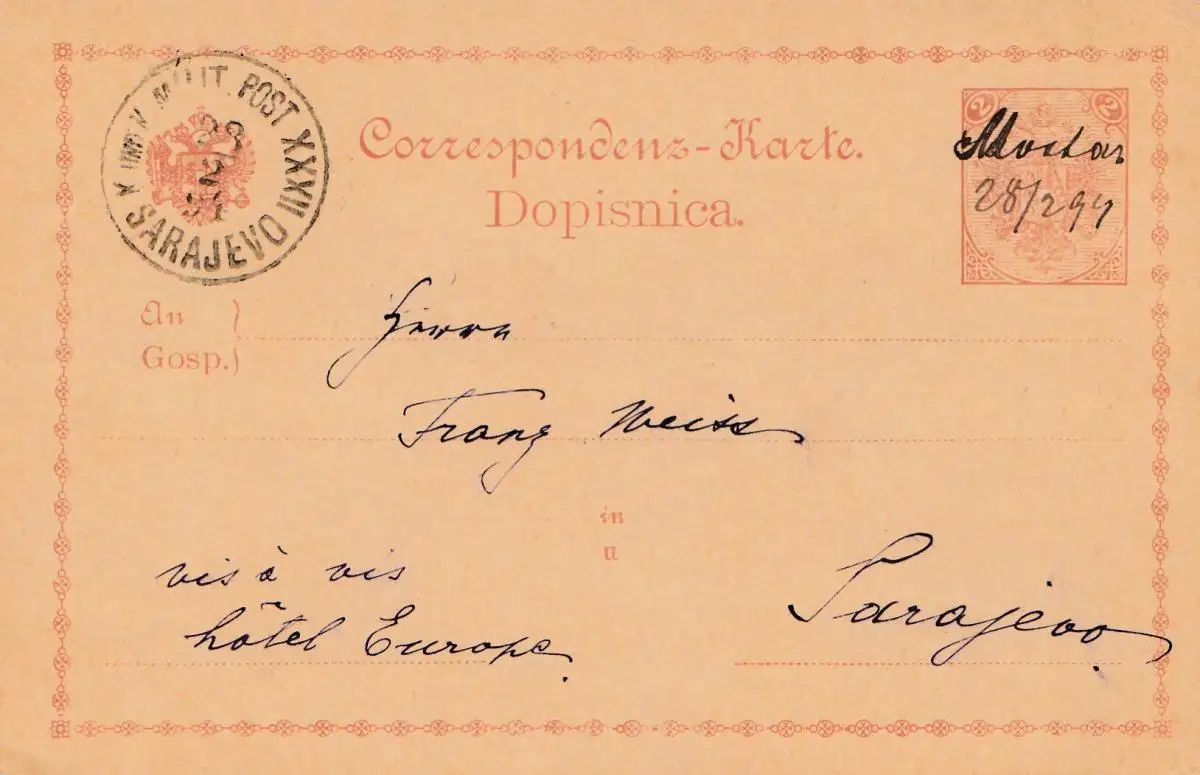 K. UND K. MILIT. POST XXXII
SARAJEVO
2
Correspondenz-Karte.
Dopisnica.
2 2
Mostar
28/2 94
An
Gosp.
Herrn
Franz Weiss
in
u
vis à vis
hôtel Europe.
Sarajevo.